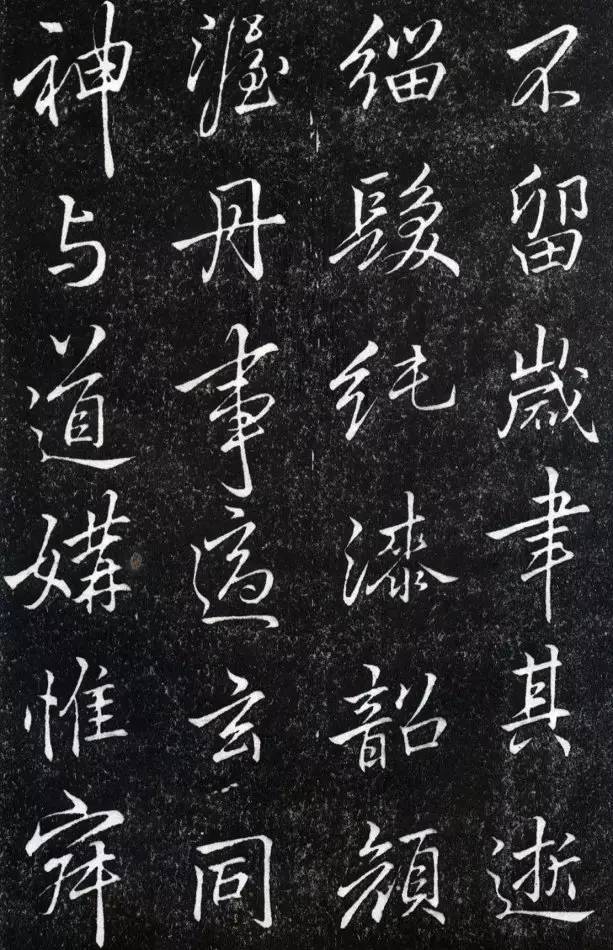 不留歲聿其逝
緇髮純漆韶顏
渥丹事適玄同
神与道媾惟